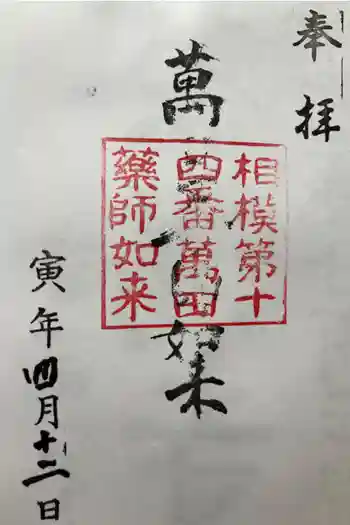 奉拝
萬如来
相模第十
四番萬田
藥師如来
寅年四月十二日